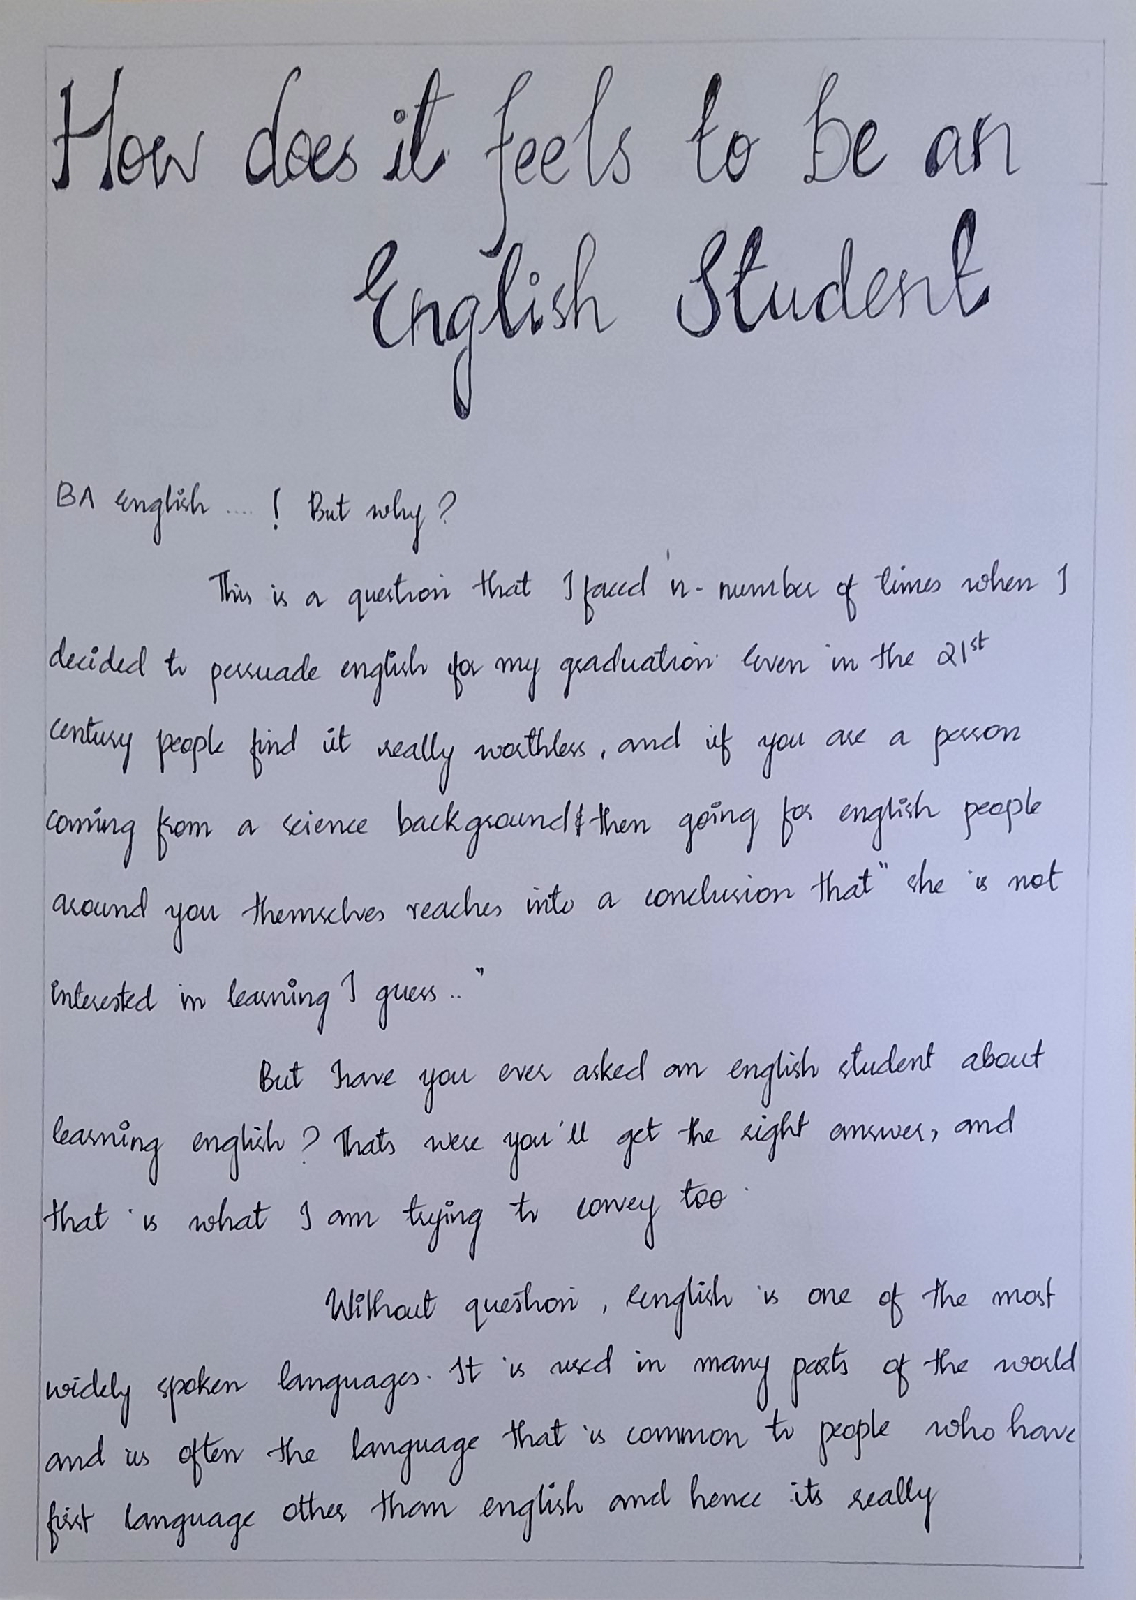 How does it feels to be an
English Student
BA English .... ! But why ?
This is a question that I faced 'n- number of times when I
decided to persuade english for my graduation. Even in the 21st
century people find it really worthless, and if you are a person
coming from a science background & then going for english people
around you themselves reaches into a conclusion that " she is not
interested in learning I guess .. "
But have you ever asked an english student about
learning english ? Thats were you'll get the right answer, and
that is what I am trying to convey too.
Without question, English is one of the most
widely spoken languages. It is used in many parts of the world
and is often the language that is common to people who have
first language other than english and hence its really